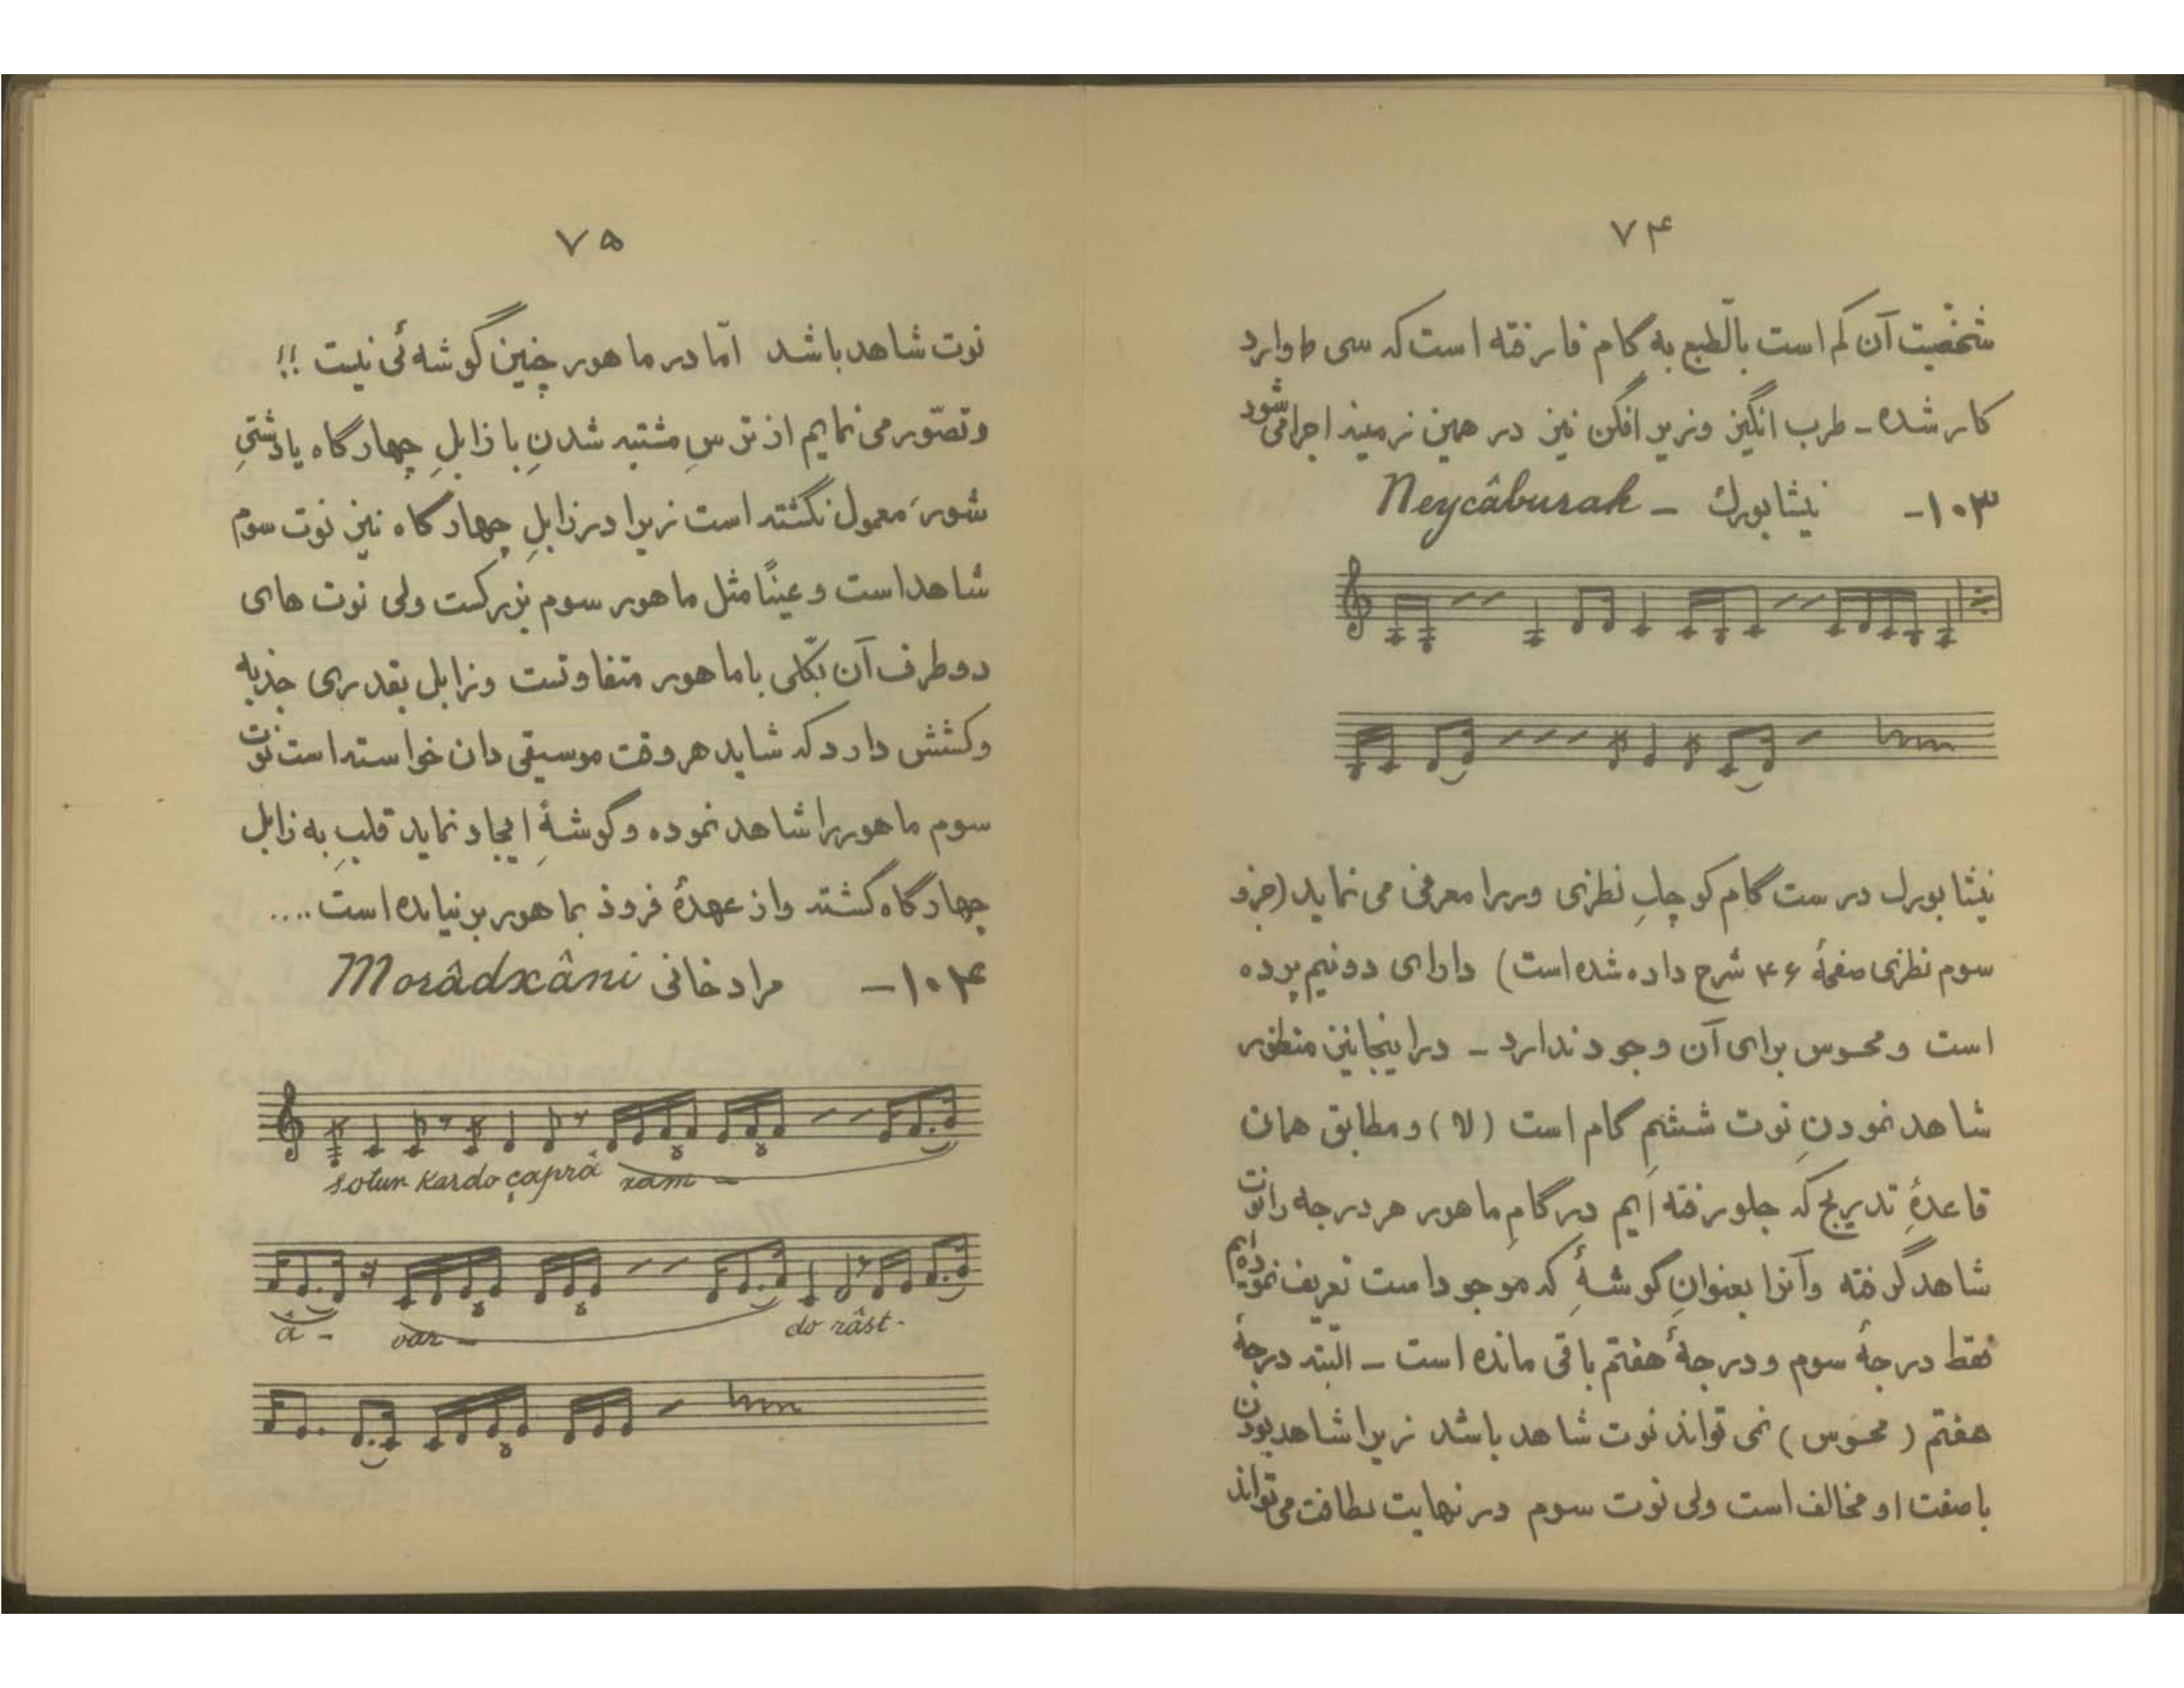 ۷۴
شخصّیت آن کم است بالّطبع به گام فا رفته است که سی ط وارد
کار شده ـ طرب انگیز و زیر افکن نیز در همین زمینه اجرا می شود
۱۰۳- نیشابورك ـ Neycâburak
نیشابورك درست گام کوچكِ نظری و ر را معرفی می نماید (جزو
سوم نظری صفحهٔ ۴۶ شرح داده شده است) دارای دو نیم پرده
است و محسوس برای آن وجود ندارد ـ در اینجا نیز منظور
شاهد نمودنِ نوت ششمِ گام است (لا) و مطابق همان
قاعدهِ تدریج که جلو رفته ایم در گامِ ماهور هر درجه را نوت
شاهد گرفته و آنرا بعنوانِ گوشهٔ که موجود است تعریف نموده ایم
فقط درجهٔ سوم و درجهٔ هفتم باقی مانده است ـ البّته درجهٔ
هفتم (محسوس) نمی تواند نوت شاهد باشد زیرا شاهد بودن
با صفت او مخالف است ولی نوت سوم در نهایت لطافت می تواند
۷۵
نوت شاهد باشد امّا در ماهور چنین گوشه ئی نیست !!
و تصّور می نمایم از ترسِ مشتبه شدنِ با زابلِ چهارگاه یا دشتیِ
شور، معمول نگشته است زیرا در زابلِ چهارگاه نیز نوت سوم
شاهد است و عیناً مثل ماهور سوم بزرگست ولی نوت های
دو طرف آن بکّلی با ماهور متفاوتست و زابل بقدری جذبه
و کشش دارد که شاید هر وقت موسیقی دان خواسته است نوت
سوم ماهور را شاهد نموده و گوشهٔ ایجاد نماید قلبِ به زابل
چهارگاه گشته و از عهدهٔ فرود بماهور بر نیامده است ....
۱۰۴- مراد خانی Morâdxâni
sotun kardo çaprâ xam -
â - var - do râst-